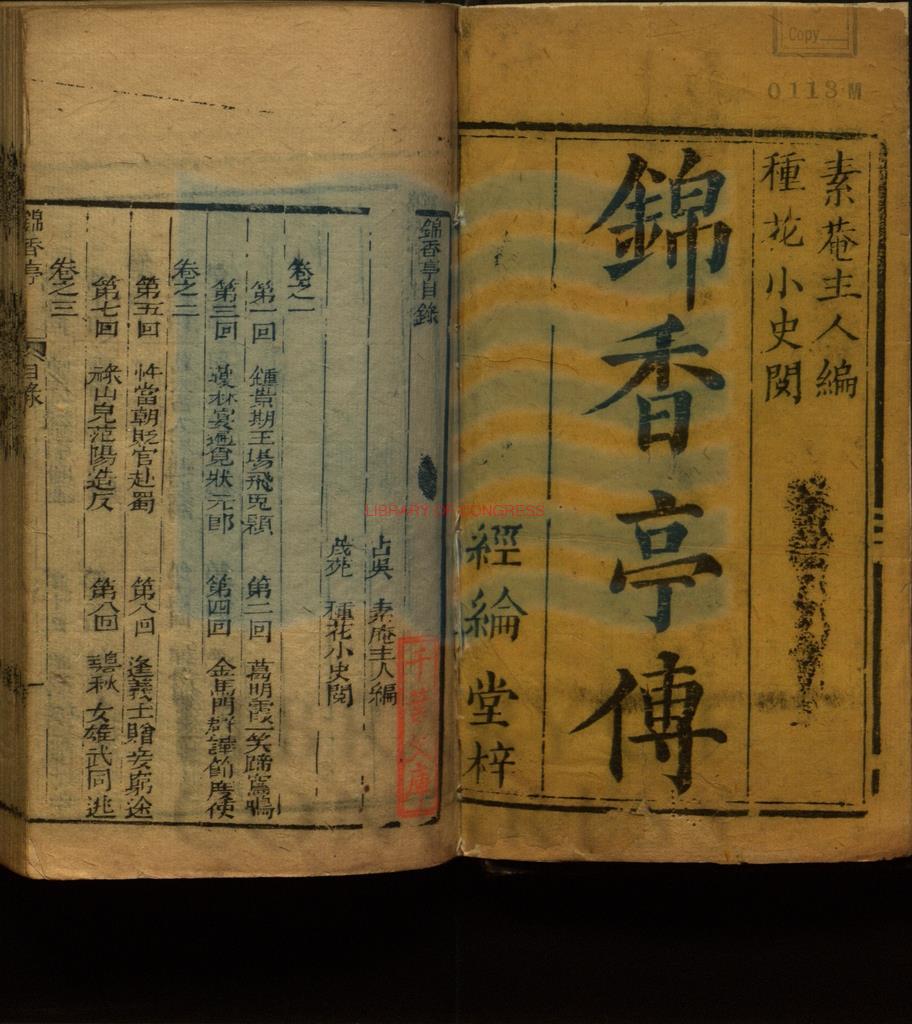 Copy
0113M
素菴主人編
種花小史閱
錦香亭傳
經綸堂梓
錦香亭目錄
古吳 素庵主人編
茂苑 種花小史閱
卷之一
第一回 鍾景期王場飛兎穎 第二回 萬明霞一笑蹄鴛鴨
第三回 瓊林宴覓狀元郎 第四回 金馬門群譁節度使
卷之二
第五回 忤當朝貶官赴蜀 第八回 逢義士贈妾窮途
第七回 祿山兒范陽造反 第八回 碧秋女雄武同逃
卷之三
錦香亭
目錄
LIBRARY OF CONGRESS